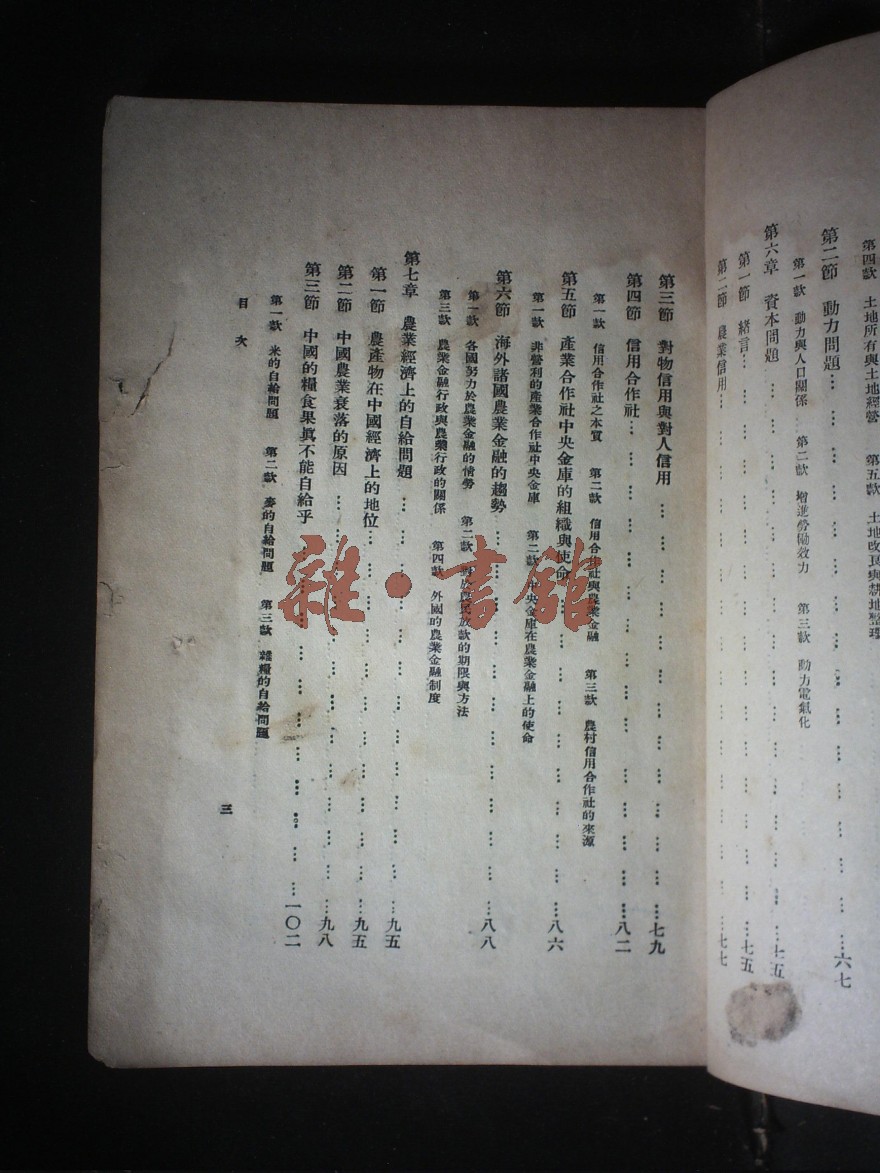 第四款　土地所有與土地經營　第五款　土地改良與耕地整理
第二節　動力問題…………………………六七
第一款　動力與人口關係　第二款　增進勞働效力　第三款　動力電氣化
第六章　資本問題…………………………七五
第一節　緒言…………………………七五
第二節　農業信用…………………………七七
第三節　對物信用與對人信用…………………………七九
第四節　信用合作社…………………………八二
第一款　信用合作社之本質　第二款　信用合作社與農業金融　第三款　農村信用合作社的來源
第五節　產業合作社中央金庫的組織與使命…………………………八六
第一款　非營利的產業合作社中央金庫　第二款　中央金庫在農業金融上的使命
第六節　海外諸國農業金融的趨勢…………………………八八
第一款　各國努力於農業金融的情勢　第二款　對於農民放款的期限與方法
第三款　農業金融行政與農業行政的關係　第四款　外國的農業金融制度
第七章　農業經濟上的自給問題…………………………九五
第一節　農產物在中國經濟上的地位…………………………九五
第二節　中國農業衰落的原因…………………………九八
第三節　中國的糧食果眞不能自給乎…………………………一〇二
第一款　米的自給問題　第二款　麥的自給問題　第三款　雜糧的自給問題
目次
三
雜·書館